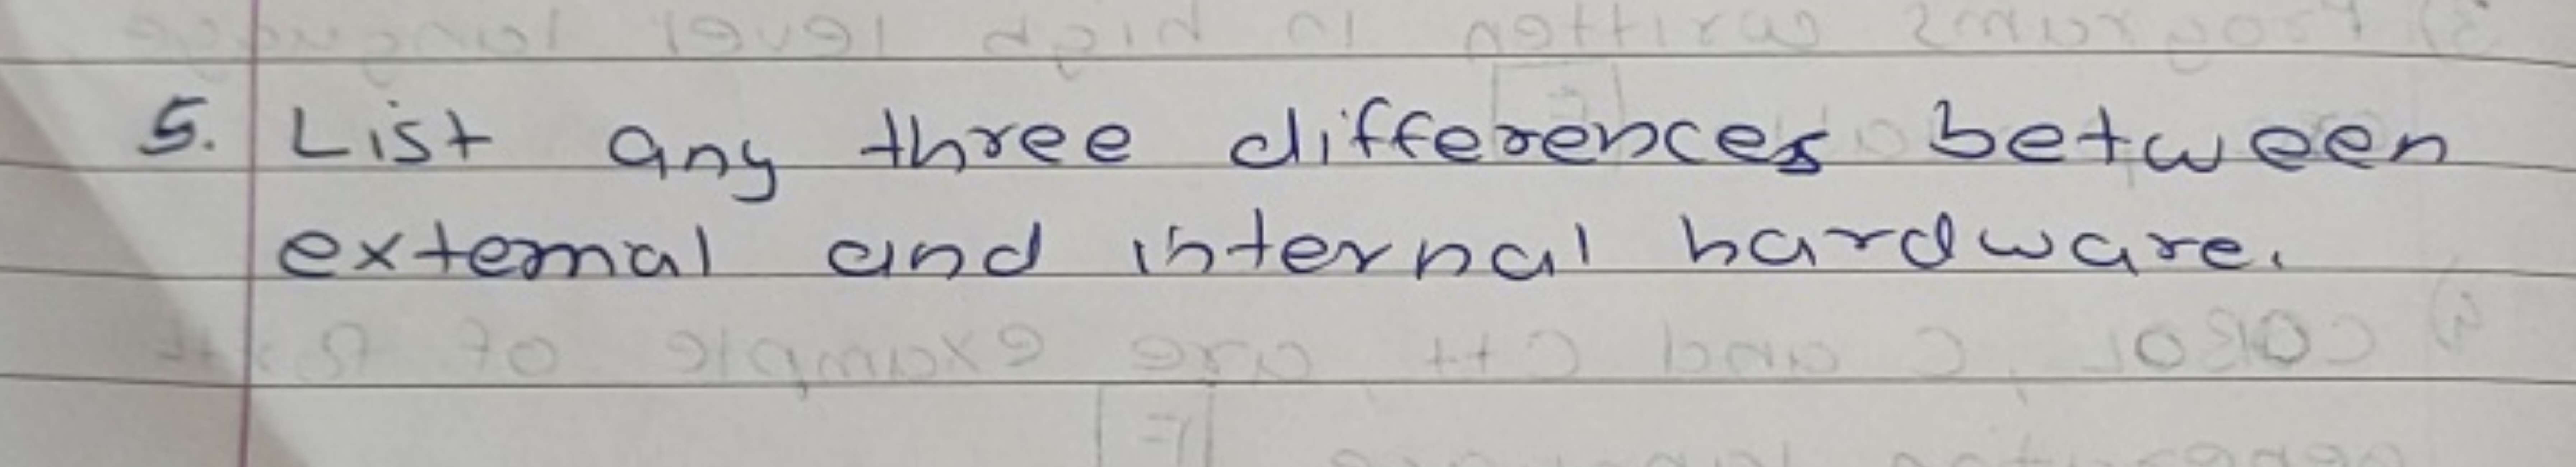 5. List any three differences between
external and internal hardware.